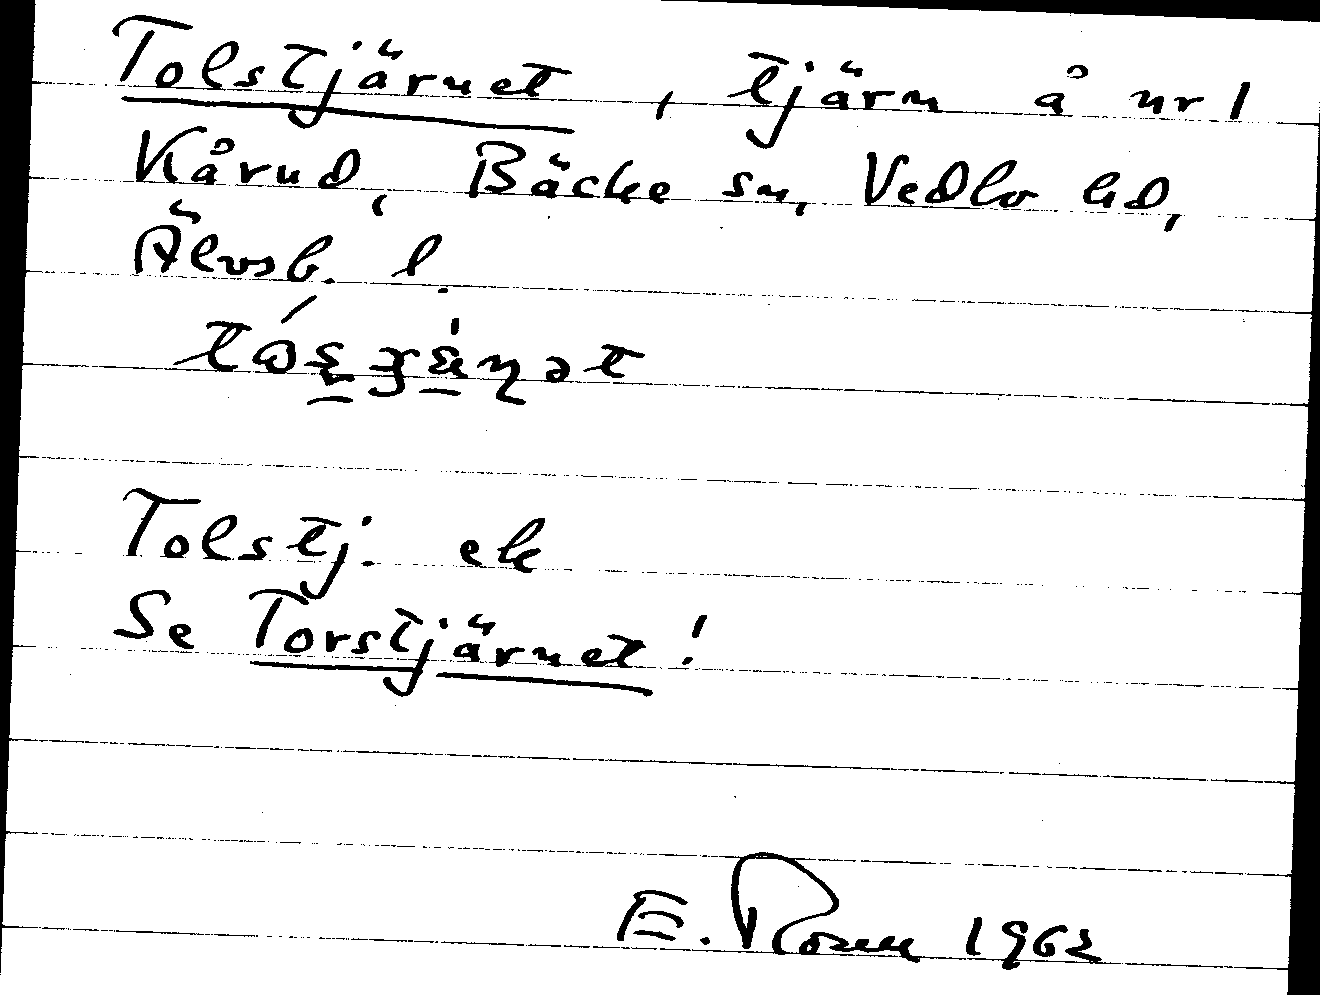 Tolstjärnet, tjärn å nr 1
Kårud, Bäcke sn, Vedbo hd,
Älvsb. l.
Tolstj. ek
Se Torstjärnet!
E. Rosell 1962